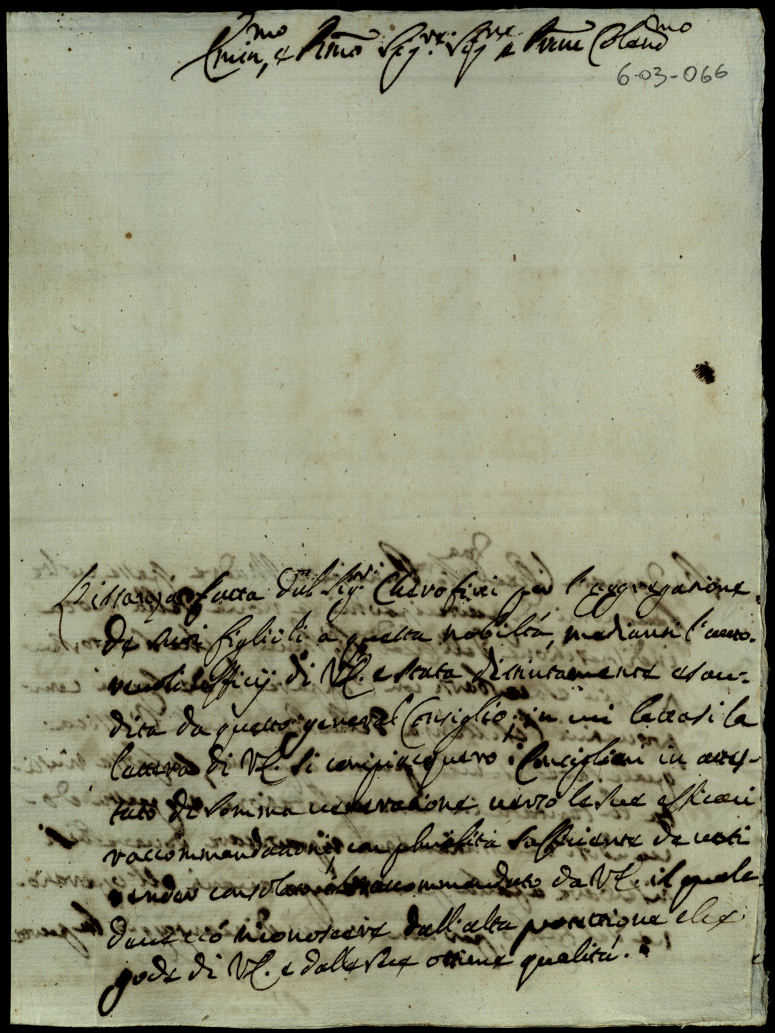 Emin.mo, e R.mo Sig.re Sig.re e P.rone Colend.mo
6-03-066
L'istanza fatta dal Sig.r Cherofini per l'aggregazione
de suoi figlioli a questa nobiltà, mediansi l'auto-
revoli officij di V.E. e stata distintamente esau-
dita da questo general Consiglio, in cui lettasi la
lettera di V.E. si compiacquero i Consiglieri in attes-
tato di somma venerazione verso le sue efficaci
raccommandationi, con pluralità sufficiente de voti
render consolato il raccommandato da V.E. il quale
deve ciò riconoscere dall'alta protettione che
gode di V.E. e dalle sue ottime qualità.